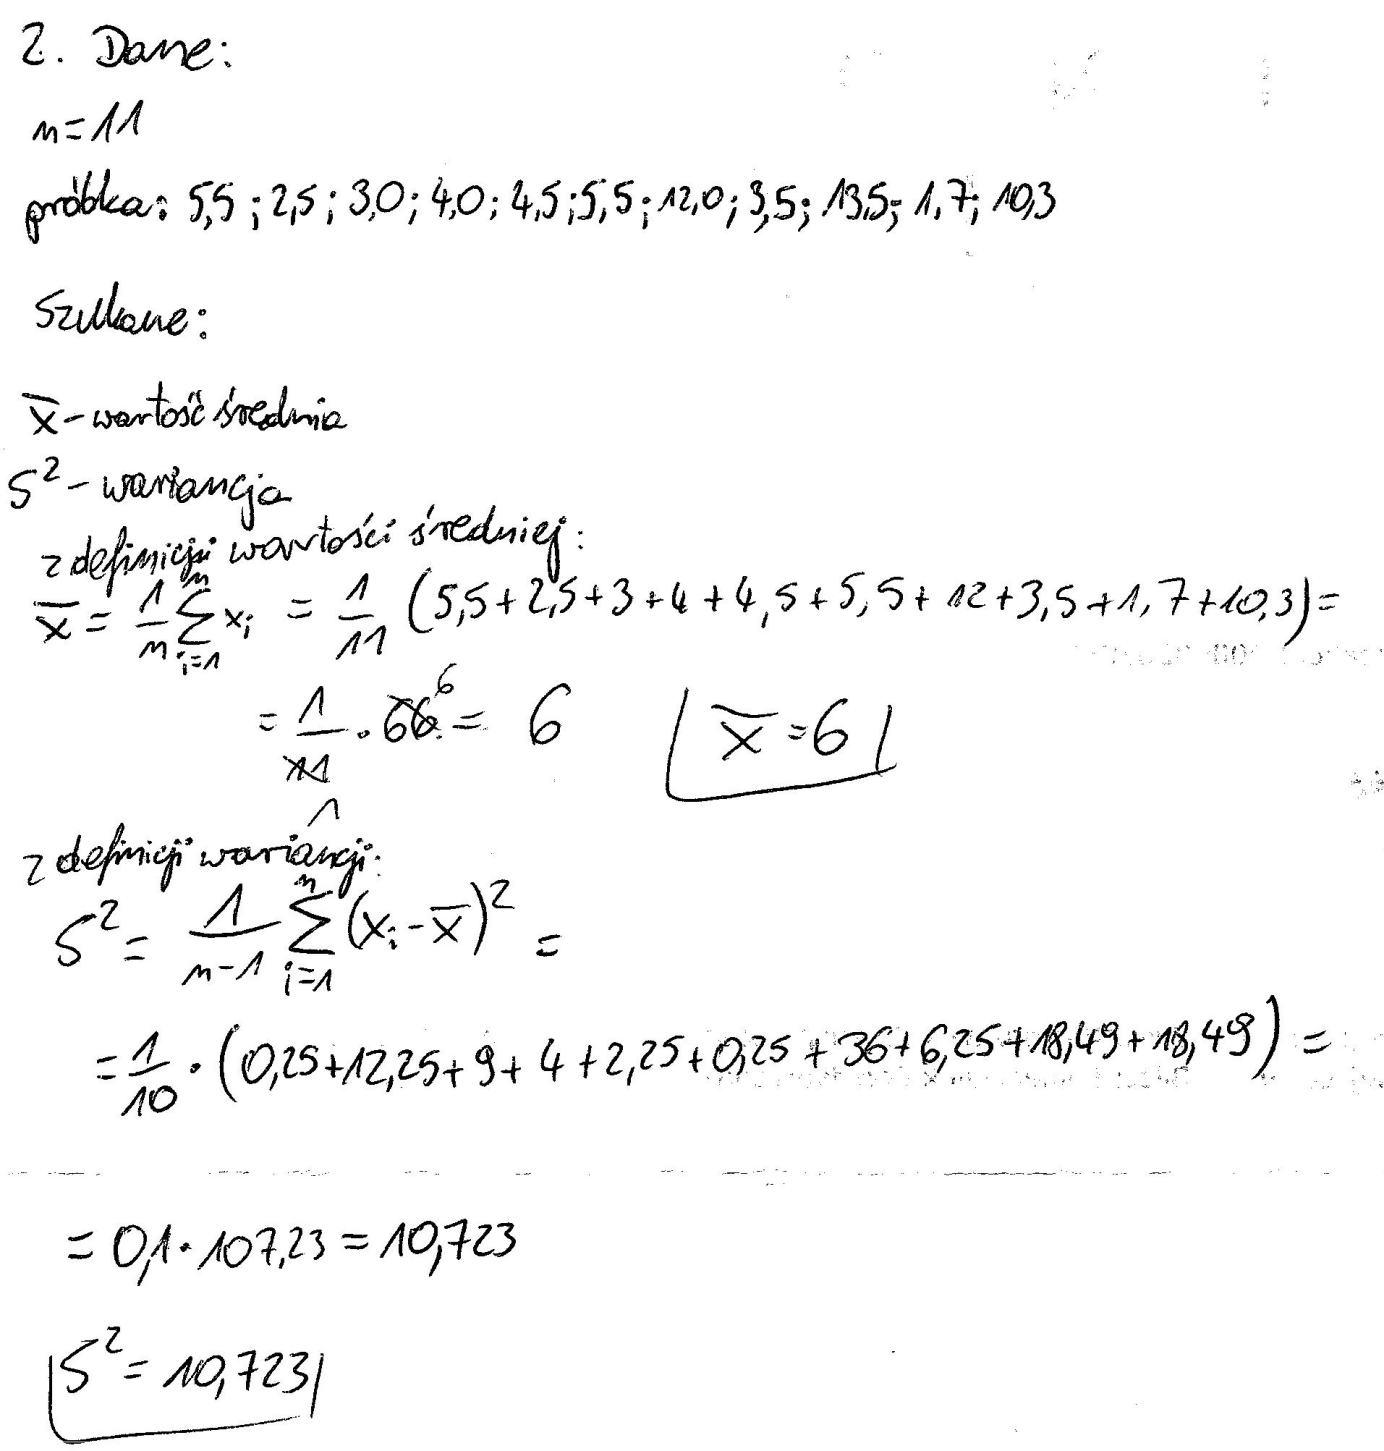 2. Dane:
n=11
próbka: 5,5; 2,5; 3,0; 4,0; 4,5; 5,5; 12,0; 3,5; 13,5; 1,7; 10,3
Szukane:
x̄ - wartość średnia
S² - wariancja
z definicji wartości średniej:
x̄ = 1/n ∑_{i=1}^{n} x_i = 1/11 (5,5+2,5+3+4+4,5+5,5+12+3,5+1,7+10,3)=
= 1/11 · 66 6 = 6 x̄=6
1
z definicji wariancji:
S² = 1/(n-1) ∑_{i=1}^{n} (x_i - x̄)² =
= 1/10 · (0,25+12,25+9+4+2,25+0,25+36+6,25+18,49+18,49) =
= 0,1·107,23 = 10,723
S² = 10,723